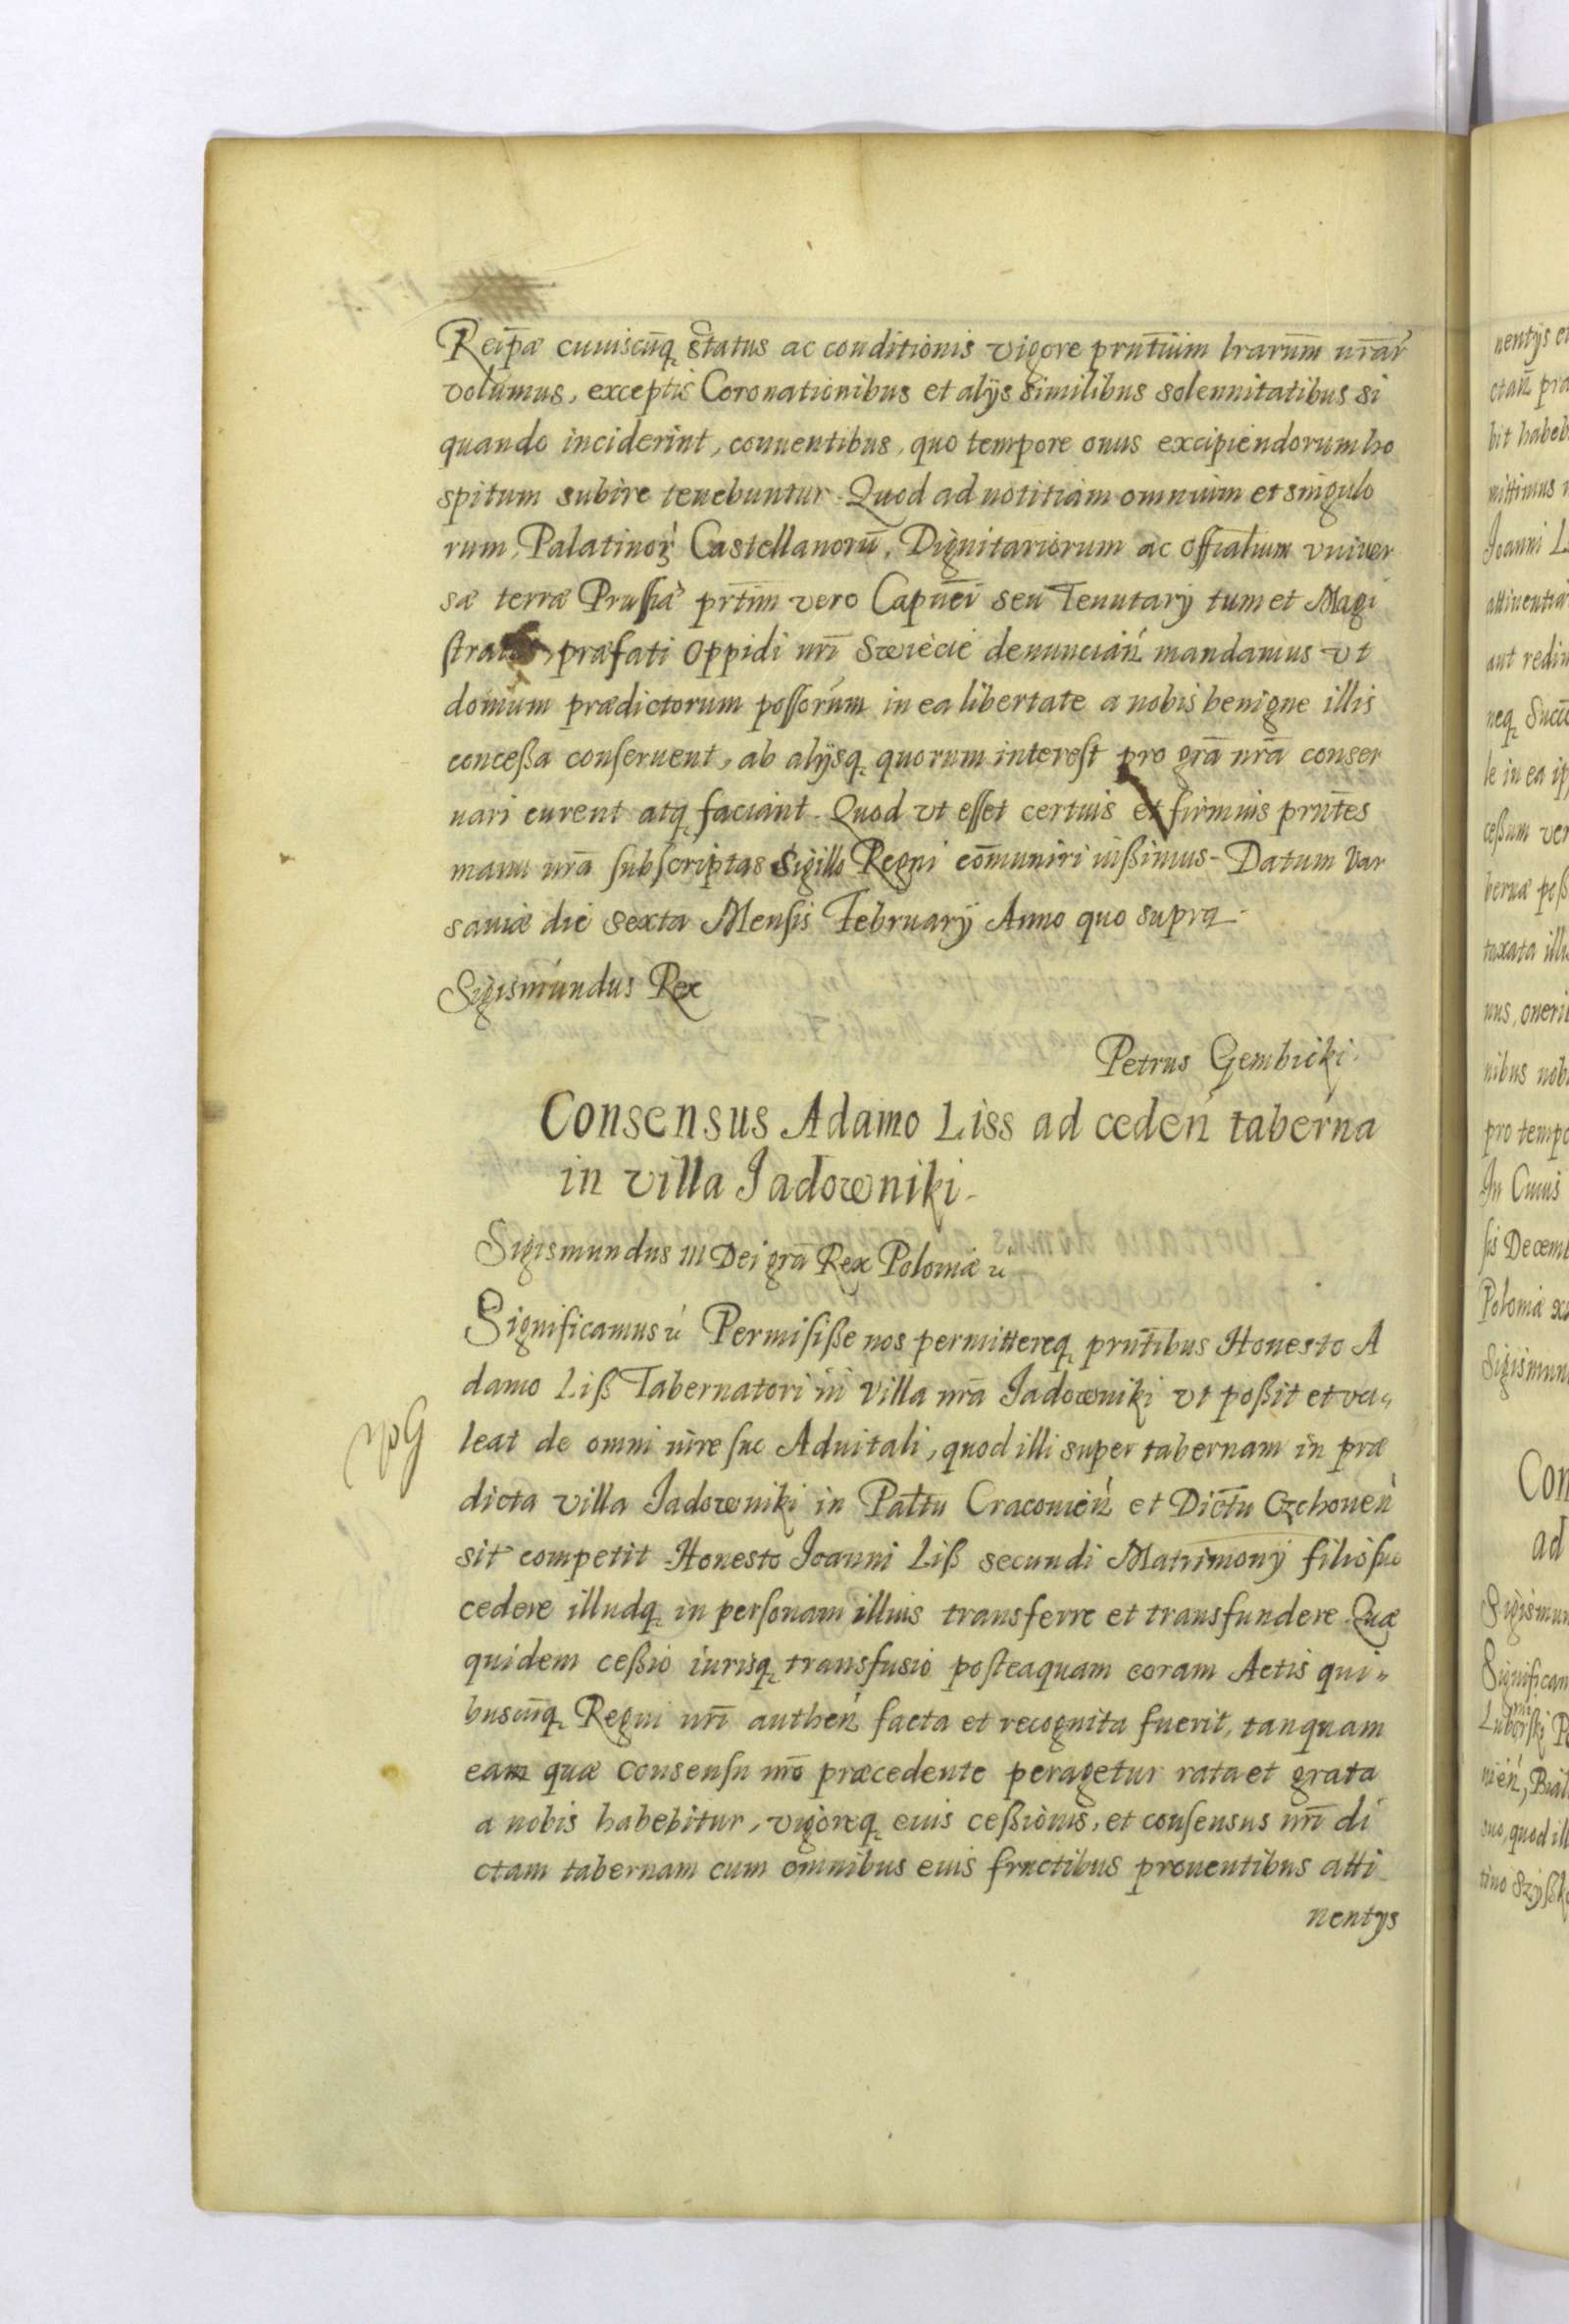 Reip̃æ cuiuscũq. status ac conditionis vigore prñtium lrarum nrãr
volumus, exceptis Coronationibus et alijs similibus solennitatibus si
quando inciderint, conuentibus, quo tempore onus excipiendorum ho
spitum subire tenebuntur. Quod ad notitiam omnium et singulo
rum, Palatinoꝝ Castellanorũ, Dignitariorum ac Offialium vniuer
sæ terræ Prussiæ prt̃im vero Capñei seu Tenutarij tum et Magi
præfati Oppidi nrĩ Swiecie denuncian mandamus vt
domum prædictorum possorum in ea libertate a nobis benigne illis
concessa conseruent, ab alijsq. quorum interest pro grã nrã conser
uari curent atq. faciant. Quod vt esset certius et firmius prñtes
manu nrã subscriptas Sigillo Regni cõmuniri iussimus. Datum Var
sauiæ die sexta Mensis February Anno quo supra.
Sigismundus Rex
Petrus Gembicki.
Consensus Adamo Liss ad ceden taberna
in villa Jadowniki.
Sigismundus III Dei grã Rex Poloniæ
Significamus Permisisse nos permittereq. prñtibus Honesto A
damo Liß Tabernatori in Villa nrã Jadowniki vt possit et va„
leat de omni iure suo Aduitali, quod illi super tabernam in præ
dicta villa Jadowniki in Paltu Cracouien et Dictũ Czchouen
sit competit Honesto Joanni Liß secundi Matrimonij filio suo
cedere illudq. in personam illius transferre et transfundere. Quæ
quidem cessio iurisq. transfusio posteaquam coram Actis qui„
buscũq. Regni nrĩ authen facta et recognita fuerit, tanquam
eam quæ consensu nrõ præcedente peragetur rata et grata
a nobis habebitur, vigoreq. eius cessionis, et consensus nrĩ di
ctam tabernam cum omnibus eius fructibus prouentibus atti
nentys